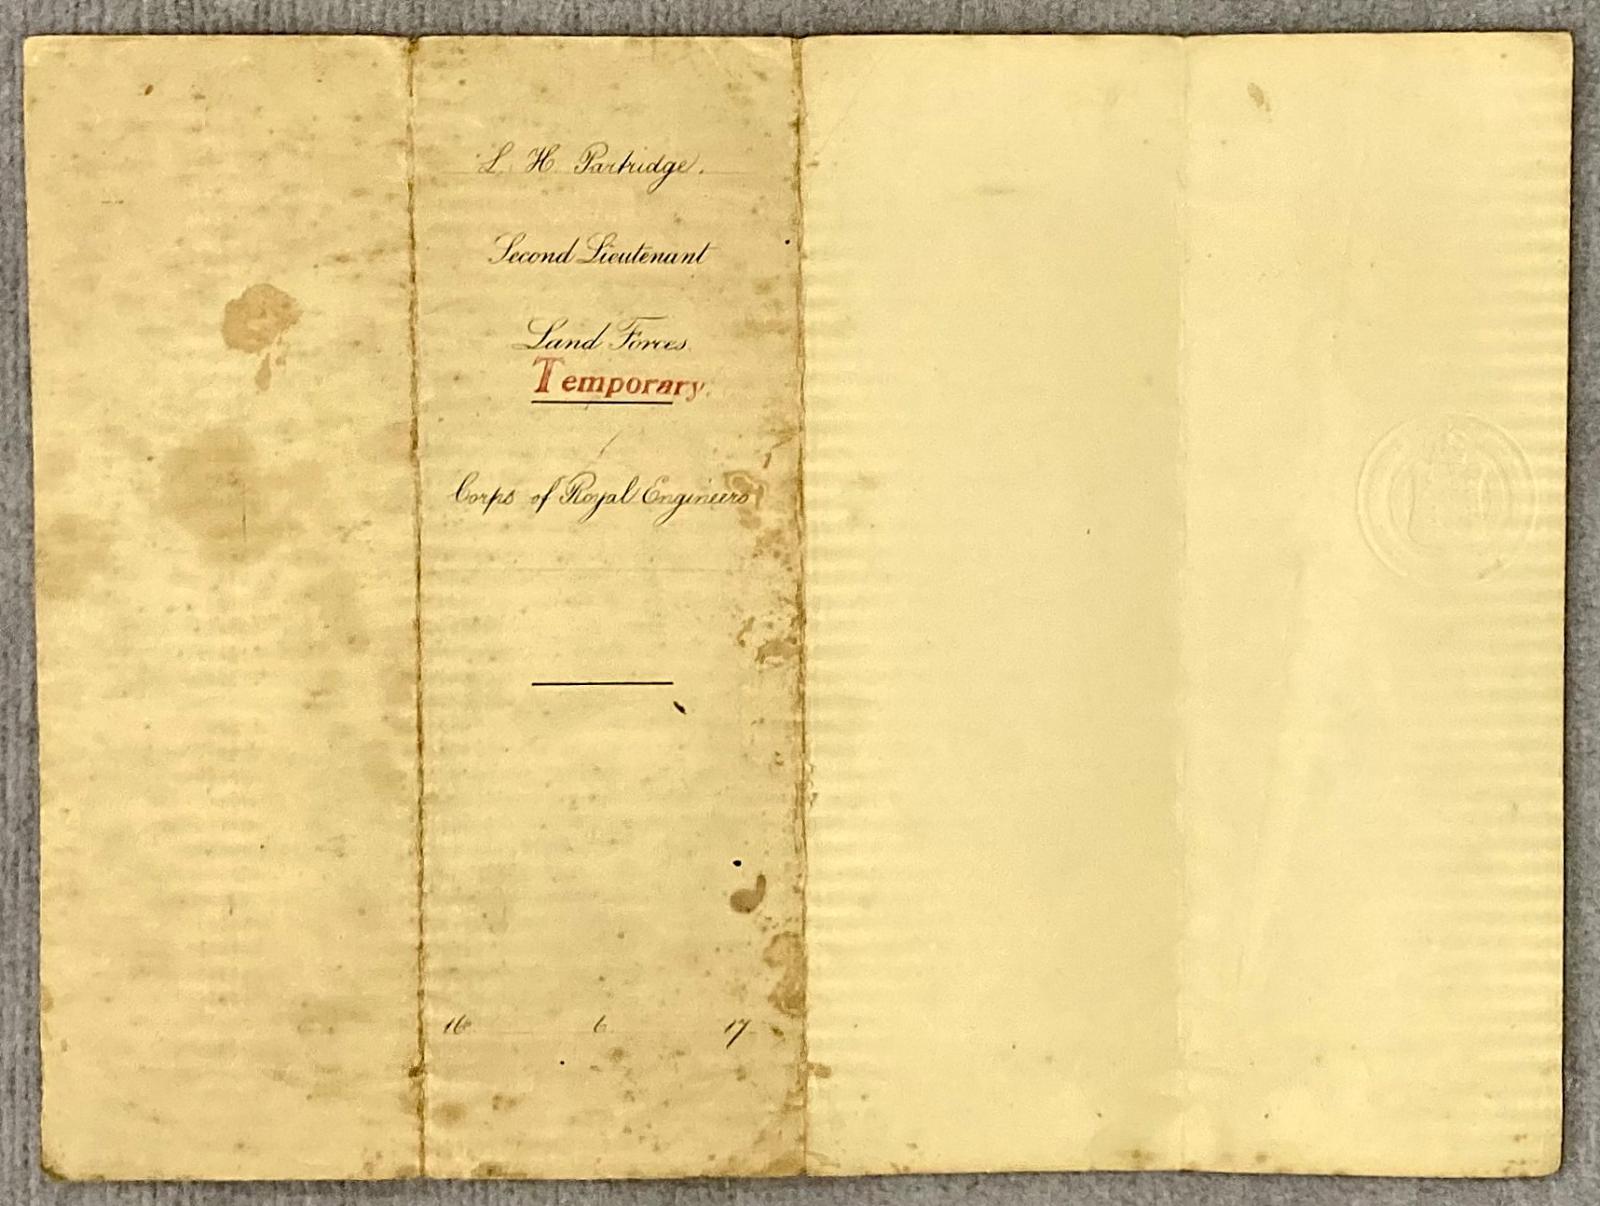 L. H. Partridge.
Second Lieutenant
Land Forces.
Temporary.
Corps of Royal Engineers
16 6 17